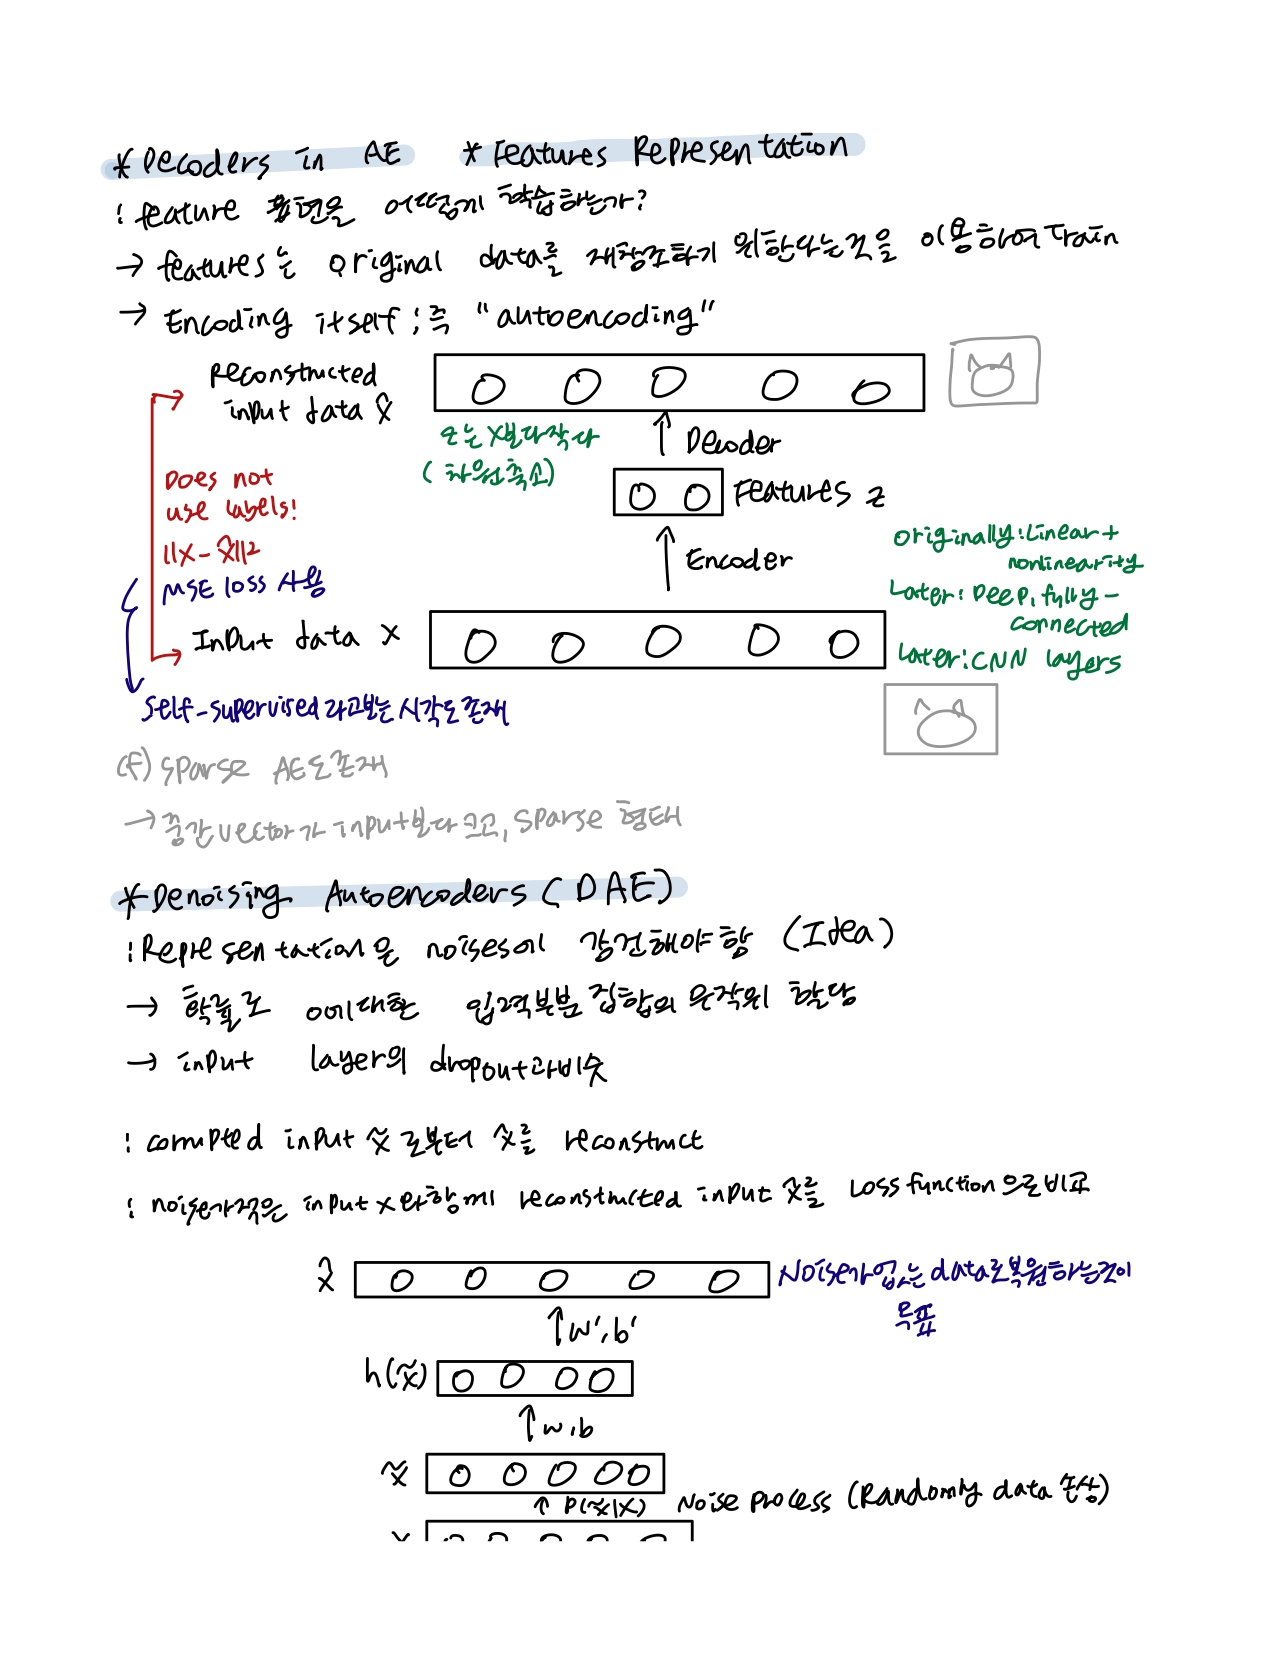 * Decoders in AE * Features Representation
! feature 표현을 어떻게 학습하는가?
→ features는 original data를 재창조하기 위한다는것을 이용하여 Train
→ Encoding itself ; 즉 "autoencoding"
Reconstructed
input data x̂
z는 x보다작다
(차원축소)
Decoder
Does not
use labels!
Features z
||x - x̂||²
MSE loss 사용
Encoder
originally: Linear +
nonlinearity
Later: Deep, fully-
connected
Later: CNN layers
Input data x
Self-supervised라고보는 시각도 존재
(f) Sparse AE도존재
→ 중간 vector가 input보다 크고, sparse 형태
* Denoising Autoencoders (DAE)
! Representation은 noises에 강건해야 함 (Idea)
→ 확률로 0에대한 입력부분 집합의 무작위 할당
→ input layer의 dropout과비슷
! corrupted input x̃로부터 x̂를 reconstruct
! noise가적은 input x와함께 reconstructed input x̂를 Loss function으로비교
x̂
Noise가없는 data로복원하는것이
목표
w', b'
h(x̃)
w, b
x̃
p(x̃|x) Noise process (Randomly data 손상)
x